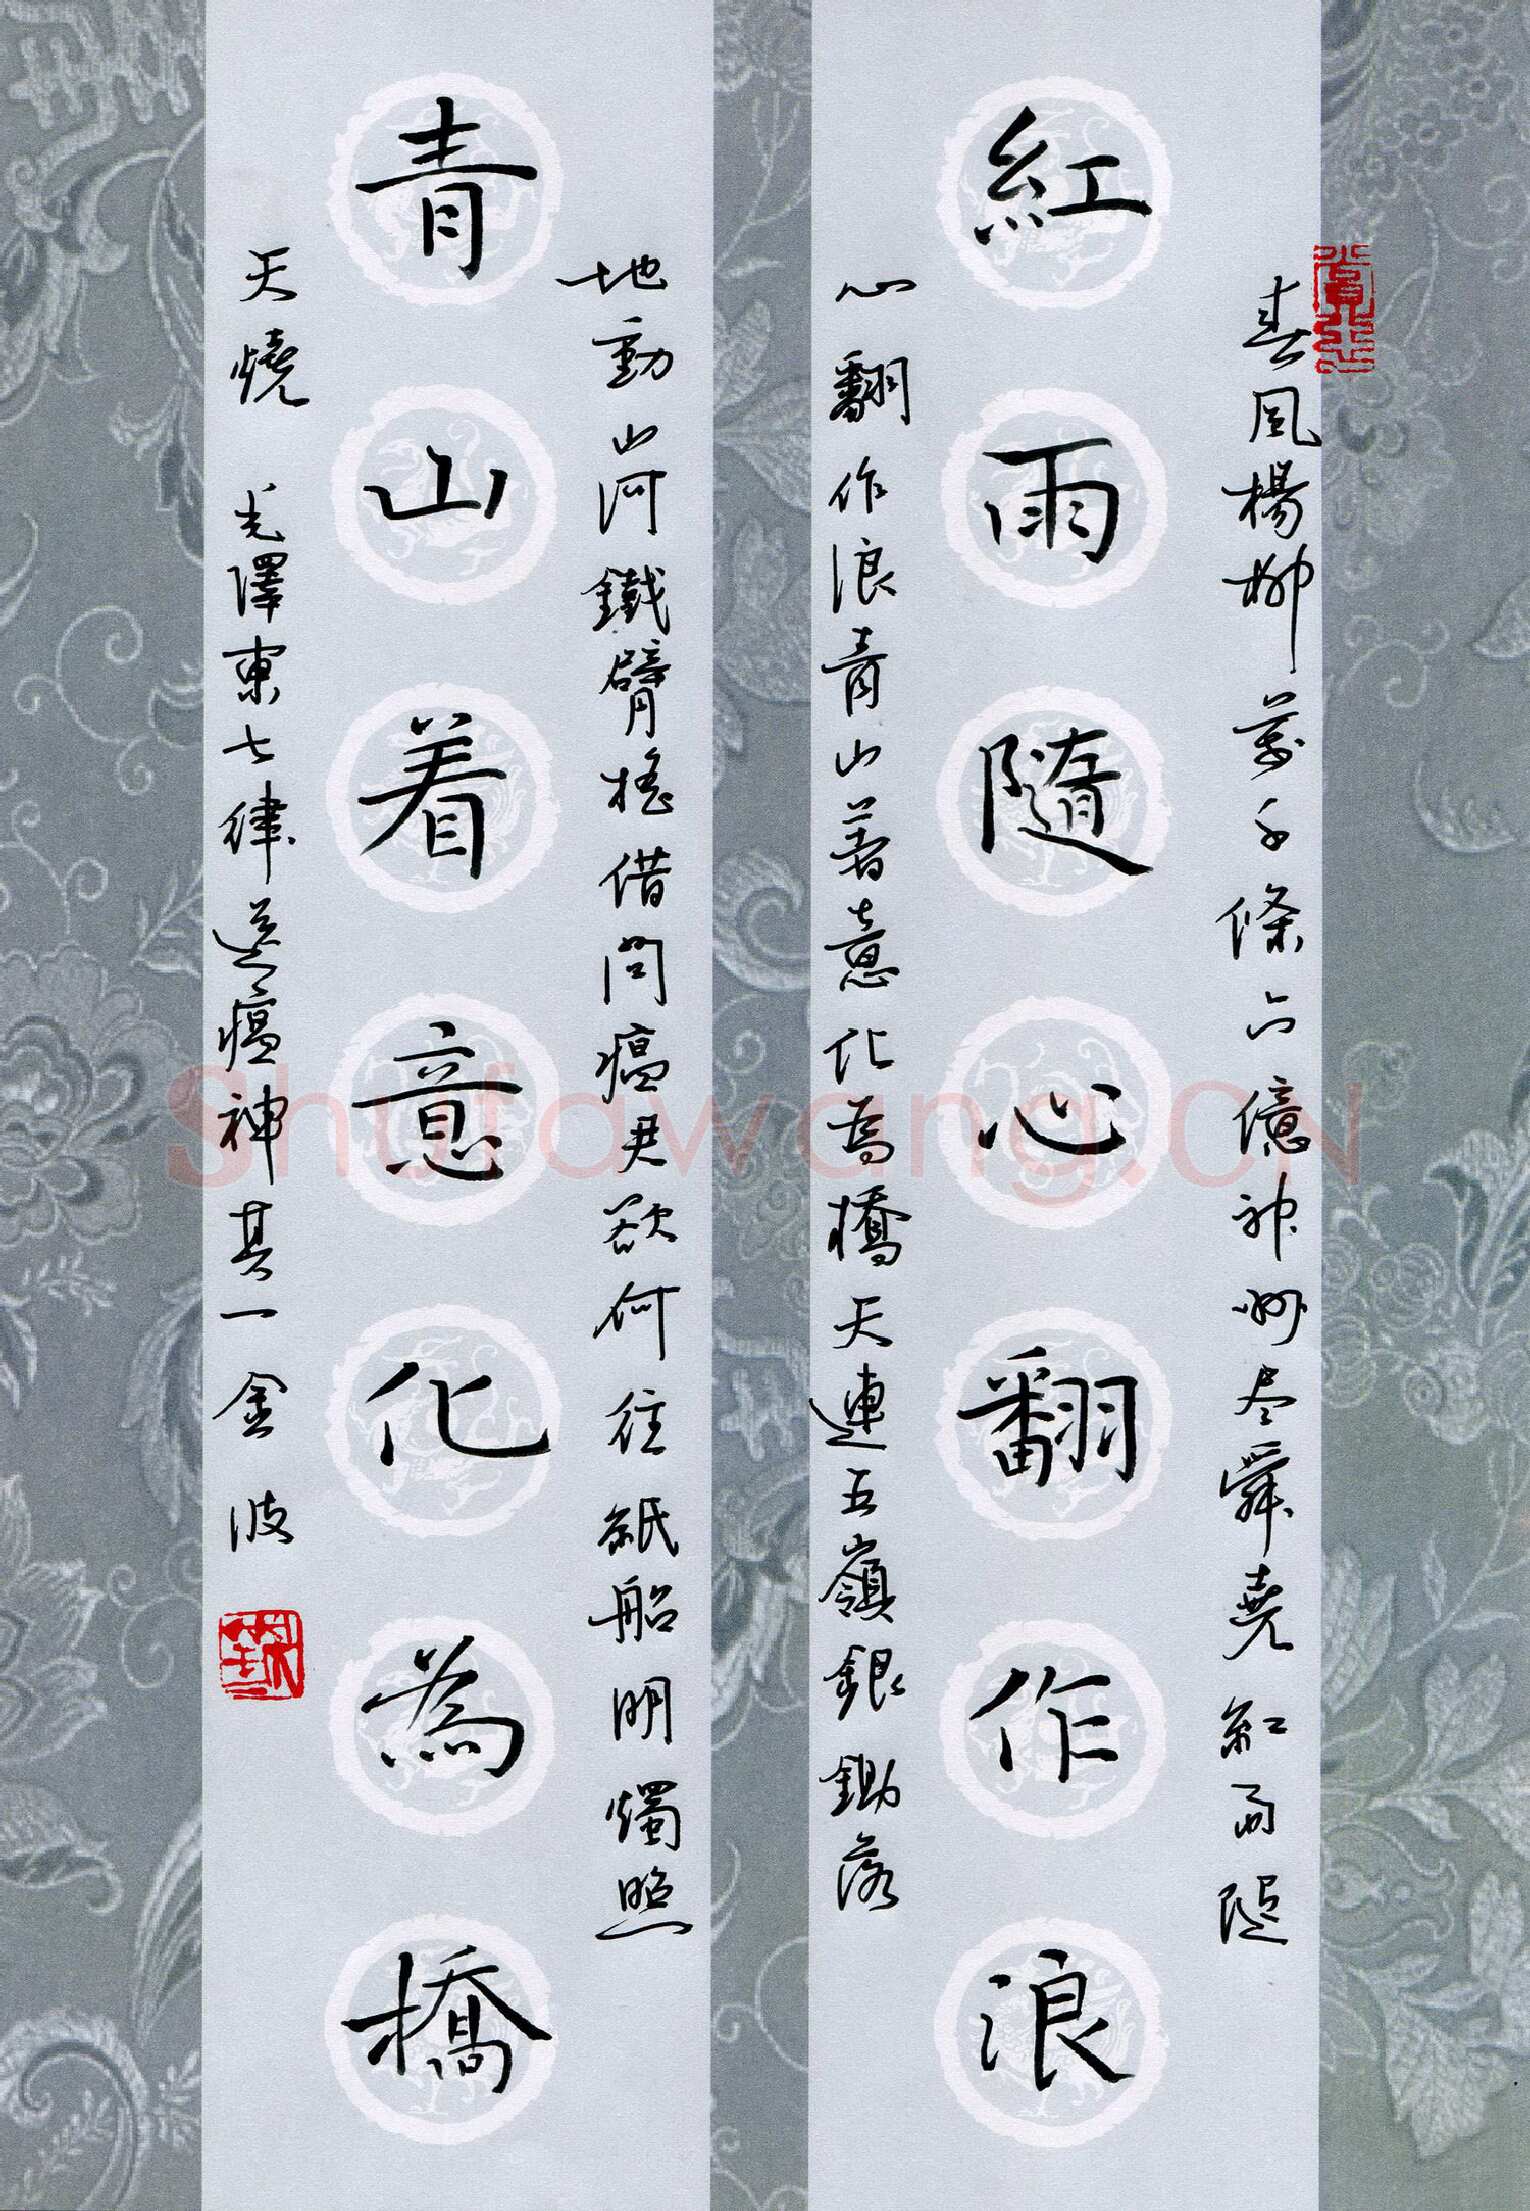 春風楊柳萬千條六億神州尽舜堯紅雨隨
紅雨隨心翻作浪
心翻作浪青山著意化為橋天連五嶺銀鋤落
地動山河鐵臂搖借問瘟君欲何往紙船明燭照
青山着意化為橋
天燒 毛澤東七律送瘟神其一金波
Shufawang.CN